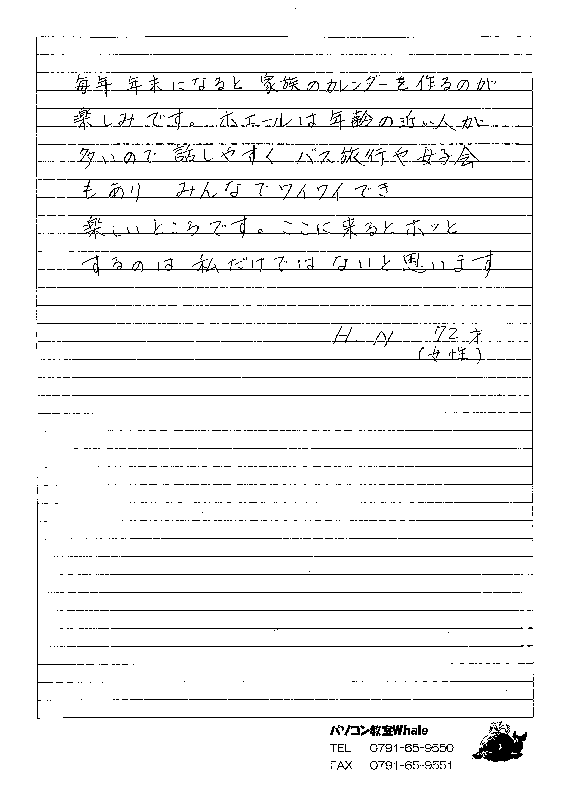 毎年 年末になると 家族のカレンダーを作るのが
楽しみです。ホエールは年齢の近い人が
多いので 話しやすく バス旅行や女子会
もあり みんなでワイワイでき
楽しいところです。ここに来るとホッと
するのは 私だけではないと思います
H.N 72才
(女性)
パソコン教室Whale
TEL 0791-65-9550
FAX 0791-65-9551